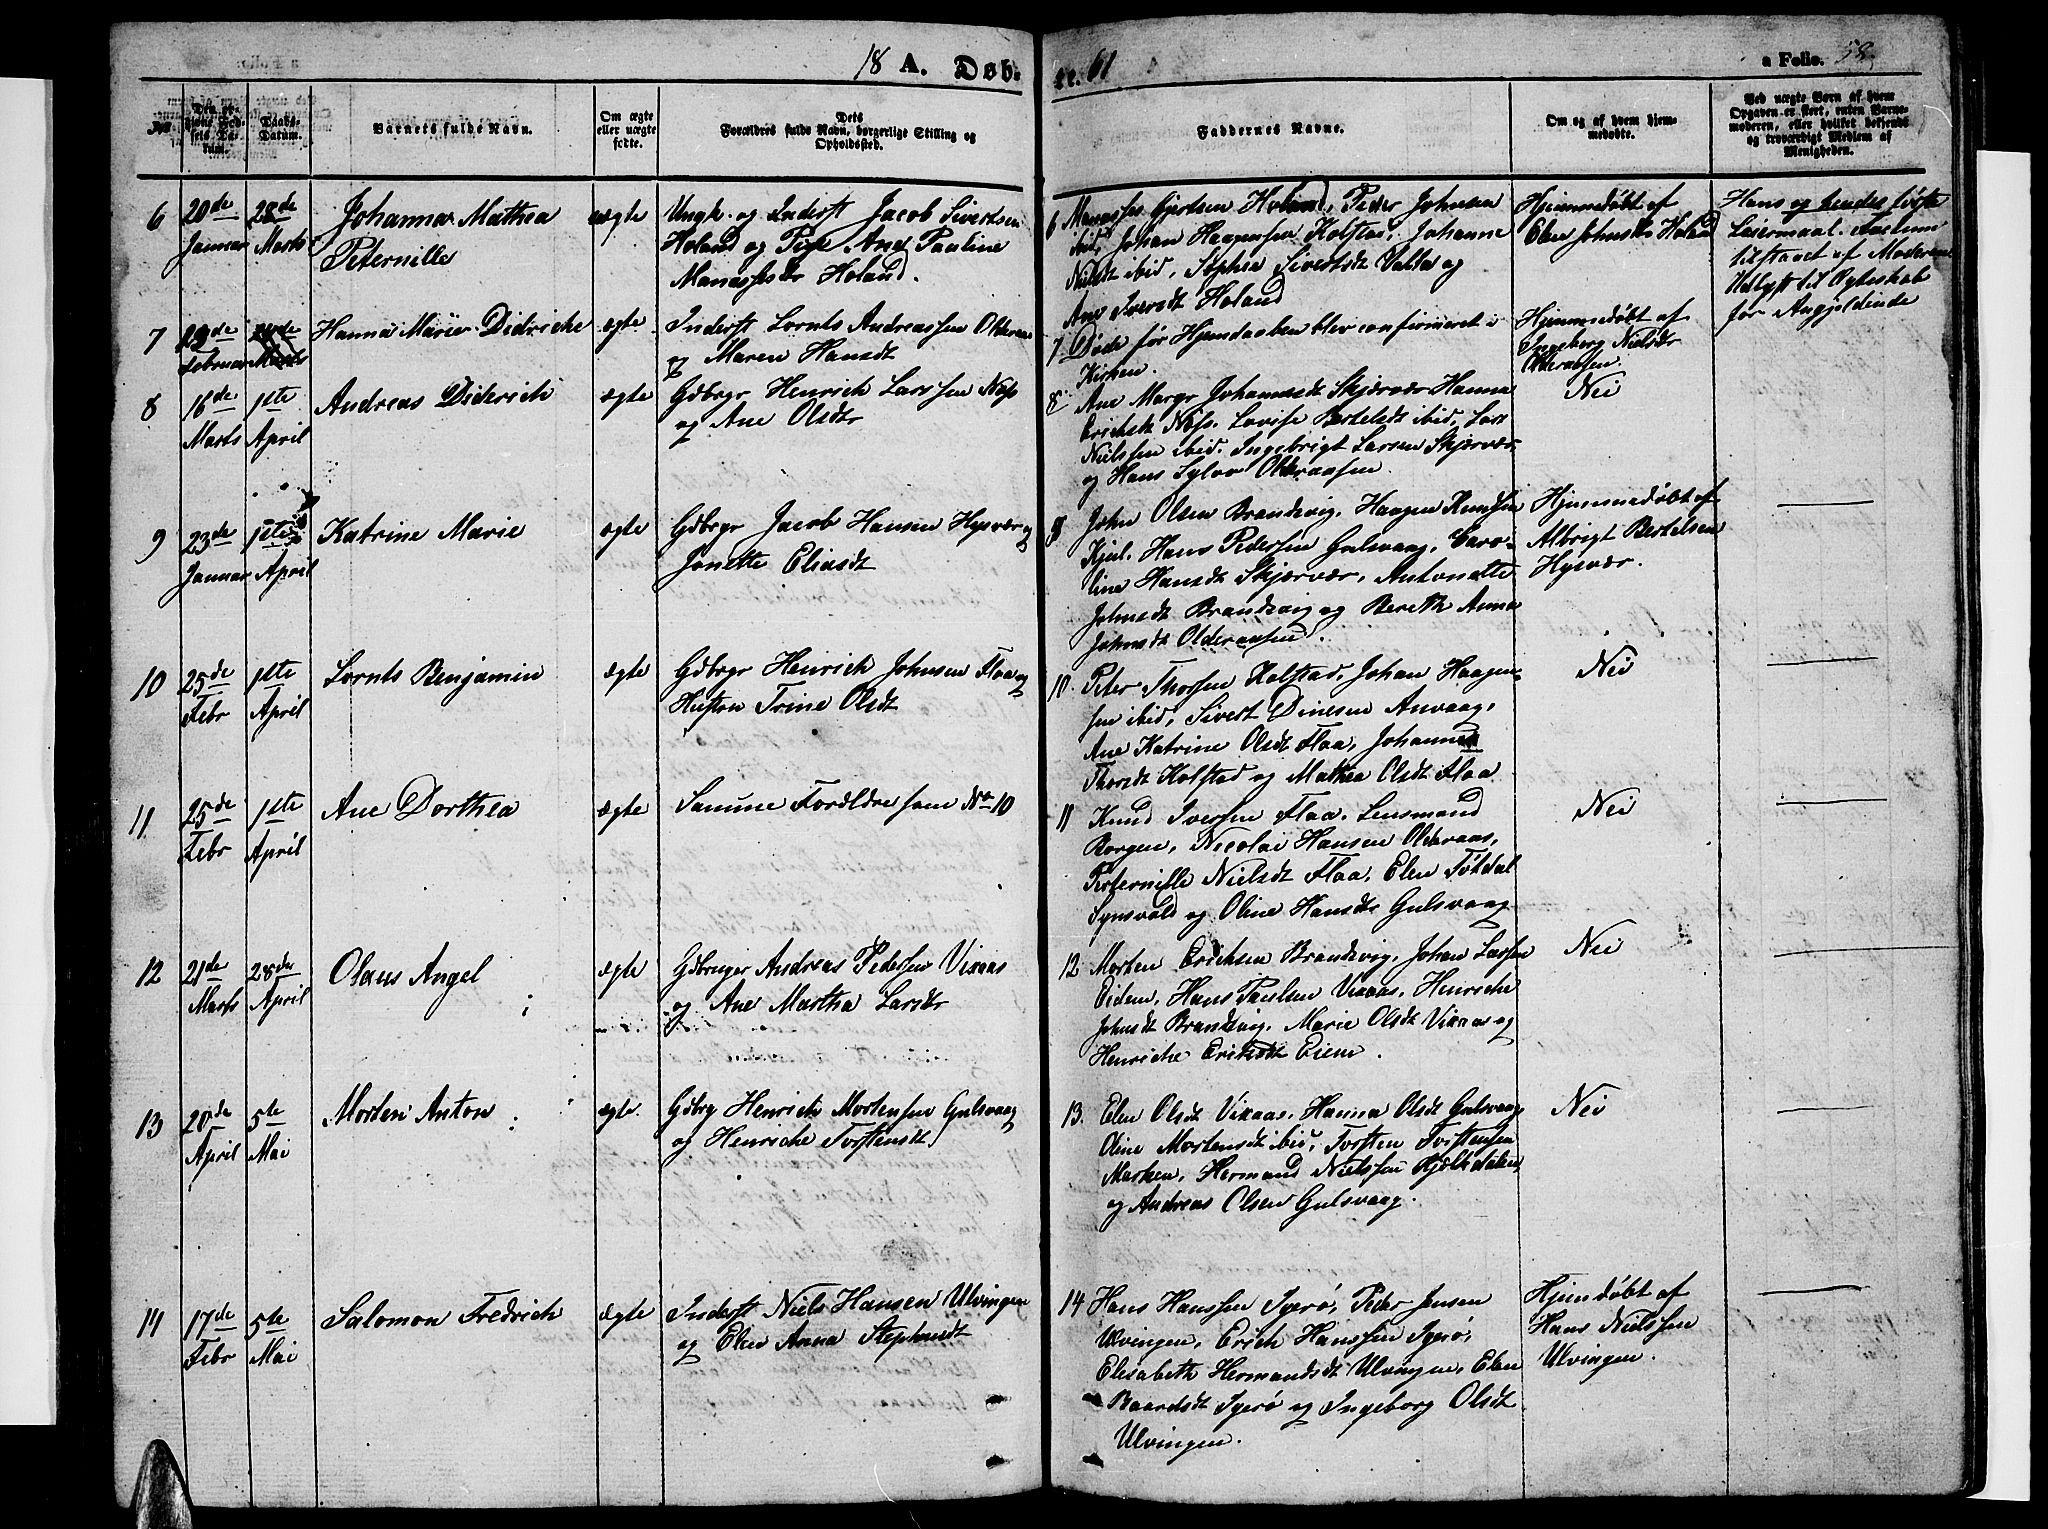 18 A. Døb-
te. 61
a Folio. 58
No
Daabs-
Datum.
Barnets fulde Navn.
Om ægte
eller uægte
fødte.
Dets
Forældres fulde Navn, borgerlige Stilling og
Opholdssted.
Faddernes Navne.
Om og af hvem hjem-
medøbte.
Ved uægte Børn af hvem
Opgaven er skeet, enten Barne-
moderen, eller hvilket bekjendt
og troværdigt Medlem af
Menigheden.
6 20de
Januar
28de
Marts
Johanna Mathea
Peternille
uægte
Ungk. og Inderst Jacob Sivertsen
Holand og Pige Ane Pauline
Manassesdr Holand.
6 Manasses Gjertsen Holand, Peder Johnsen
ibid, Johan Haagensen Kolstad, Johanne
Nielsdt ibid, Sophia Sivertsdt Valla og
Ane Iversdt Holand
Hjemmedøbt af
Elen Johnsdtr Holand
Hans og hendes første
Leiermaal.
af Moderen
Udlagt til
for Angjeldende
7
Februar
Marts
Hanna Marie Didriche
ægte
Inderst Lornts Andreassen Olderaas
og Maren Hansdt
7 Døde før Hjemdaaben blev confirmeret i
Kirken.
Hjemmedøbt af
Ingeborg Nielsdr
Olderaasen
8 16de
Marts
1ste
April
Andreas Diderich
ægte
Gdbrgr Henrich Larssen Næs
og Ane Olsdtr
8 Ane Margr Johannesdt Skjærvær Hanna
Erichsdt Næs. Lovise Bertelsdt ibid, Lars
Nielssen ibid. Ingebrigt Larsen Skjærvær
og Hans Sylvv Olderaasen.
Nei
9 23de
Januar
1ste
April
Katrine Marie
ægte
Gdbrgr Jacob Hansen Hysvær og
Jonette Eliasdt
9 John Olsen Brandsvig, Haagen Knudsen
Kjul. Hans Pedersen Gulsvaag, Caro-
line Hansdt Skjærvær, Antonette
Johnsdt Brandsvig og Bereth Anna
Johnsdt Olderaasen.
Hjemmedøbt af
Albrigt Bertelsen
Hysvær.
10 25de
Febr
1ste
April
Lornts Benjamin
ægte
Gdbrgr Henrich Johnsen Flaa og
Hustru Trine Olsdt
10. Peter Thorsen Kolstad, Johan Haagen-
sen ibid, Sivert Dinesen Anvaag,
Ane Katrine Olsdt Flaa, Johanna
Thorsdt Kolstad og Mathea Olsdt Flaa
Nei
11 25de
Febr
1ste
April
Ane Dorthea
ægte
Samme Forældre som No 10
11 Knud Iversen Flaa, Lensmand
Borgen, Nicolai Hansen Olderaas,
Peternille Nielsdt Flaa, Elen
og Oline Hansdt Gulsvaag
Nei
12 21de
Marts
28de
April
Olaus Angel
ægte
Gdbruger Andreas Pedersen Vixaas
og Ane Martha Larsdtr
12 Morten Erichsen Brandsvig, Johan Larssen
Eidem, Hans Paulsen Vixaas, Henriche
Johnsdt Brandsvig, Marie Olsdt Vixaas og
Henriche Erichsdt Eiem.
Nei
13 20de
April
5te
Mai
Morten Anton
ægte.
Gdbrg Henrich Mortensen Gulsvaag
og Henriche Torstensdt
13. Elen Olsdt Vixaas, Hanna Olsdt Gulsvaag
Oline Mortensdt ibid, Torsten Torstensen
Marken, Hermand Nielssen
og Andreas Olsen Gulsvaag.
Nei
14 17de
Febr
5te
Mai
Salomon Fredrich
ægte
Inderst Niels Hansen Ulvingen
og Elen Anna Stephansdt
14 Hans Hanssen Igerø, Peder Jensen
Ulvingen, Erich Hanssen Igerø,
Elisabeth Hermandsdt Ulvingen, Elen
Baardsdt Igerø og Ingeborg Olsdt
Ulvingen.
Hjemdøbt af
Hans Nielssen
Ulvingen.